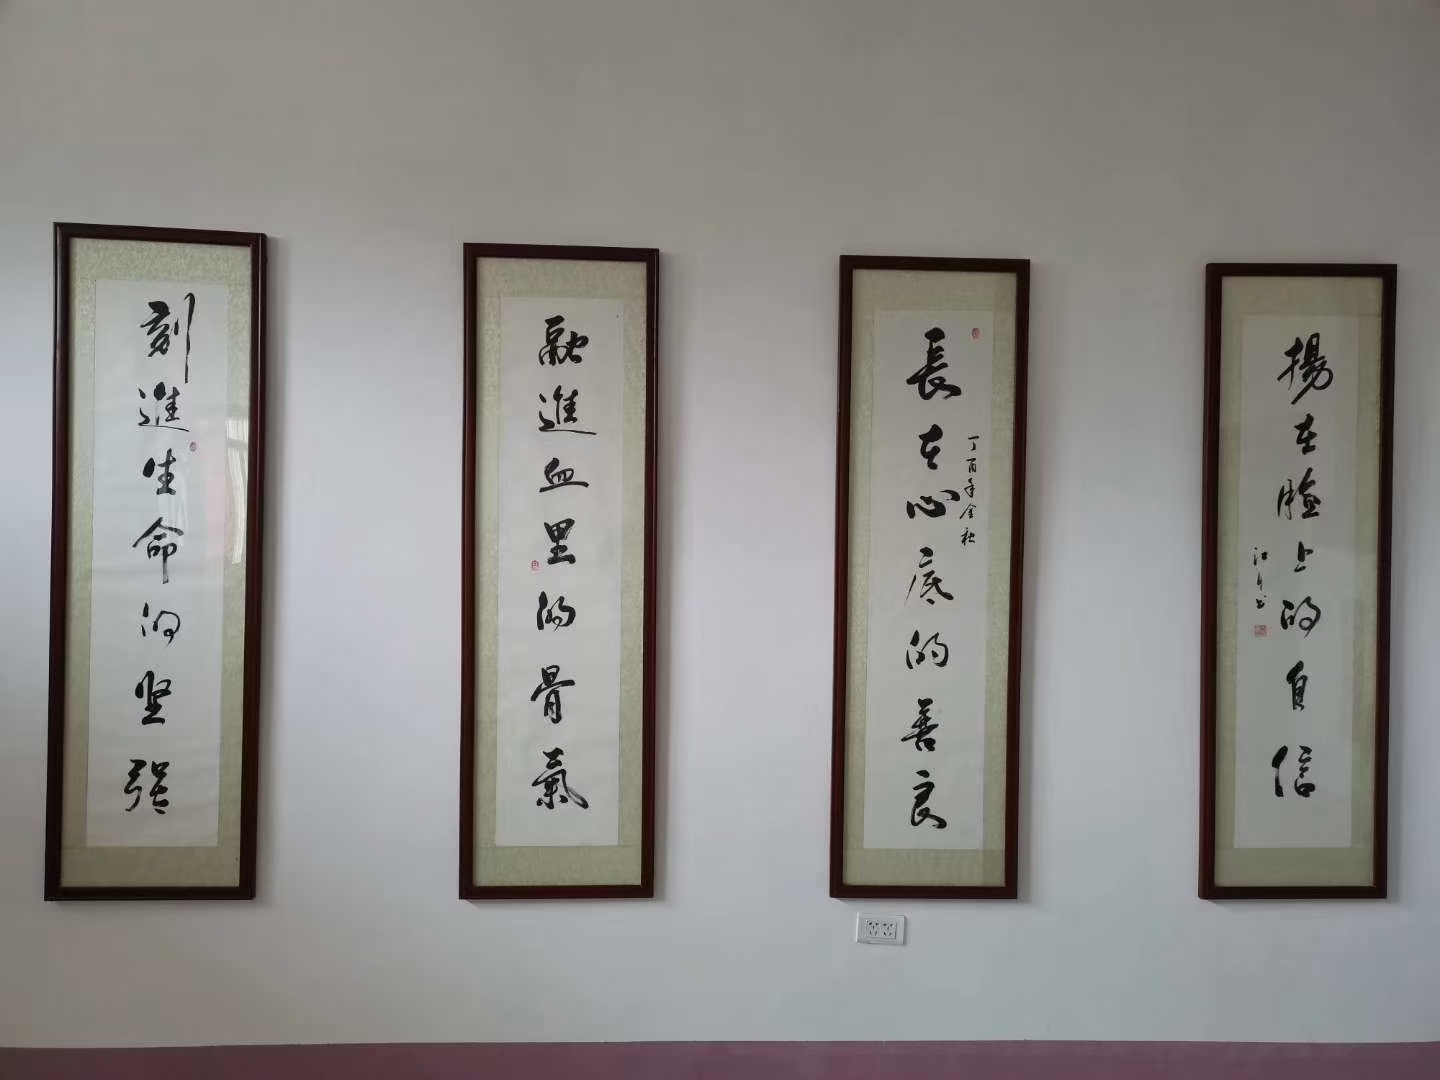 揚在脸上的自信
長在心底的善良
丁酉年金秋
融進血里的骨氣
刻進生命的坚强